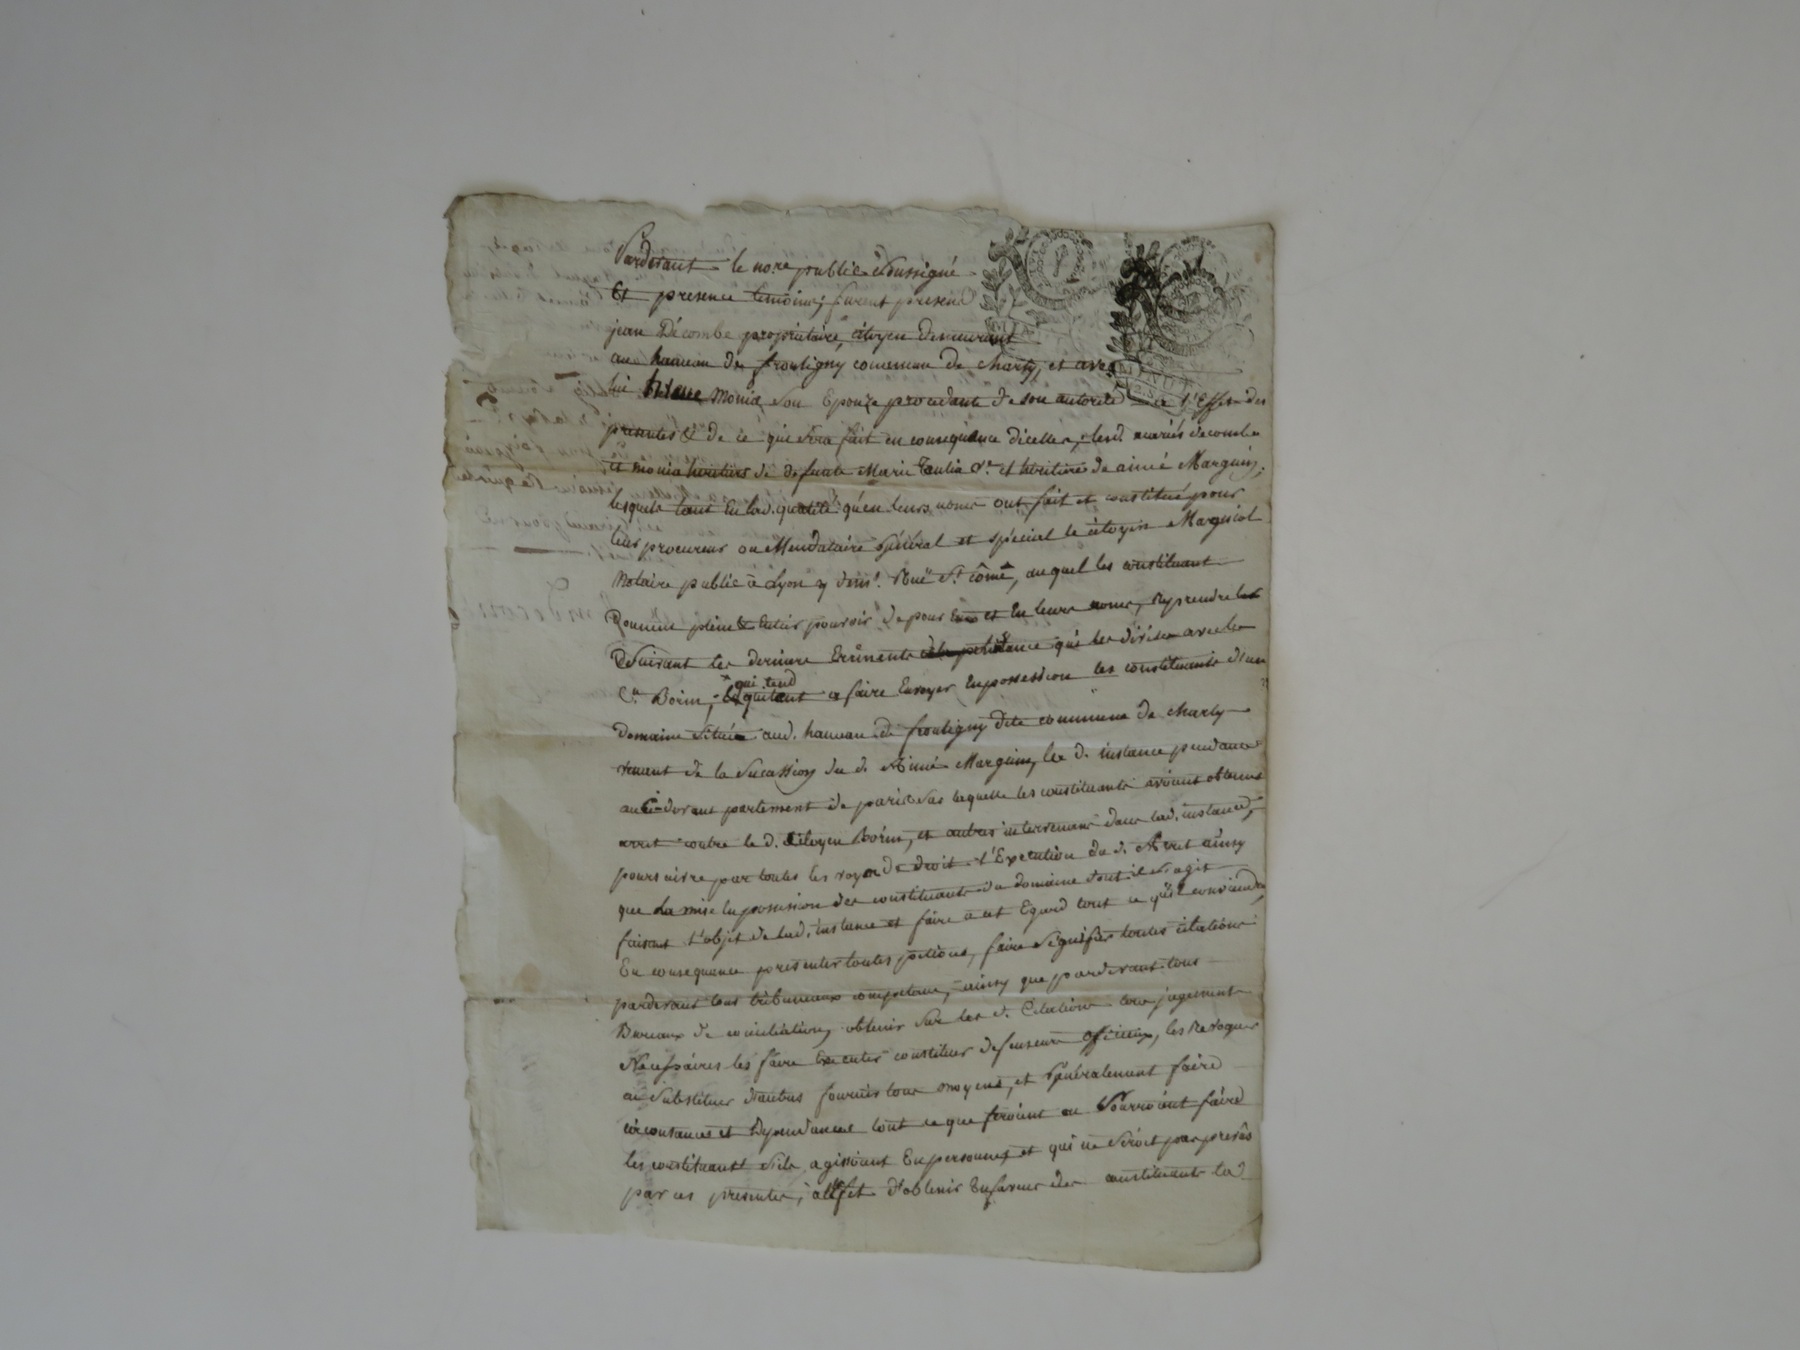 Pardevant le nore public soussigné
Et presence temoins, furent presens
jean Décombe propriétaire, citoyen demeurant
au hameau de frontigny commune de charly, et avec
lui Monia son Epouze procedante de son autorité a l'Effet des
presentes & de ce qui sera fait en consequence d'icelles, lesd. mariés decombe
et monia heritiers de defunte Marie et heritiere de aimé Marguin,
lesquels tant En lad. qualité qu'en leurs noms ont fait et constitué pour
leur procureur ou Mendataire général et spécial le citoyen
Notaire public à Lyon y demt. Ruë St. Côme, auquel les constituant
Donnent plein & Entier pouvoir de pour Eux et En leurs noms, Reprendre
Suivant les derniers Erréments instance qui les divise avec le
Cn. Borin, qui tend a faire Envoyer En possession les constituants d'un
domaine situé aud. hameau de frontigny dite commune de charly
venant de la sucession du d. Aimé Marguin, les d. instance pendante
au Ci-devant parlement de paris Sur laquelle les constituants avoient obtenus
arret contre le d. Citoyen Borin, et autres intervenans dans lad. instance,
poursuivre par toutes les voyes de droit l'Execution du d. Arret ainsy
que La mise En possession des constituants du domaine dont il s'agit
faisant l'objet de lad. instance et faire à cet Egard tout ce qu'il conviendra,
En consequence presenter toutes petitions, faire signifier toutes citations
pardevant tous tribunaux competans, ainsy que pardevant tous
Bureaux de conciliation, obtenir sur les d. Citations tous jugements
Necessaires les faire Executer constituer defenseurs officieux, les Revoquer
en substituer d'autres fournir tous moyens, et généralement faire
circonstances et Dependances tout ce que feroient ou Pourroient faire
les constituant s'ils agissoient En personnes et qui ne seroit pas
par ces presentes, à l'Effet d'obtenir En faveur des constituants la